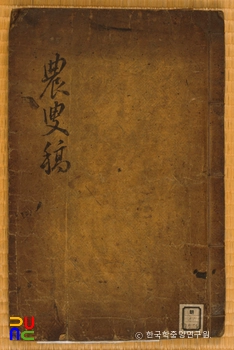 農叟稿
PUAC
© 한국학중앙연구원